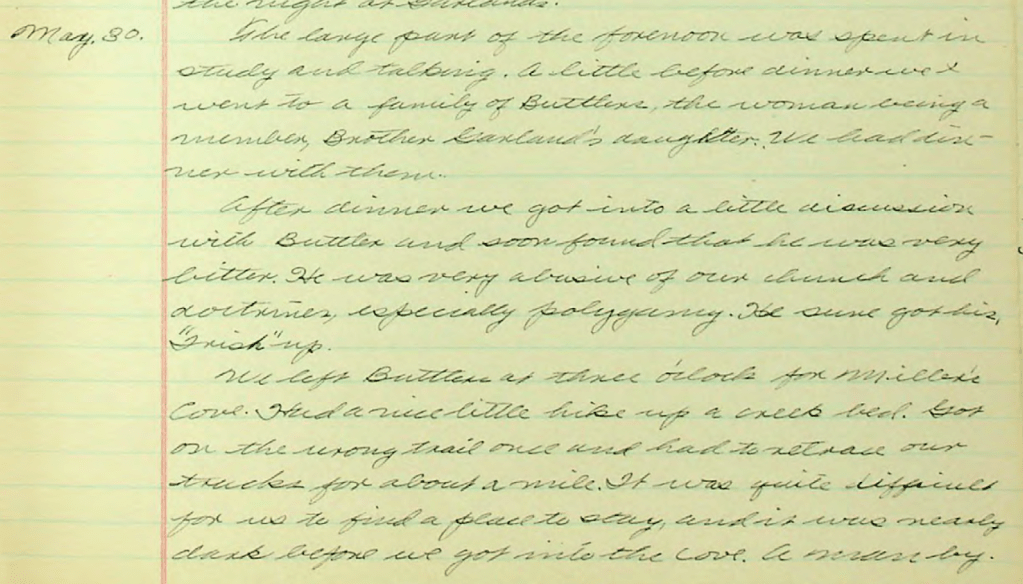 the night at Garlands.
May. 30. The large part of the forenoon was spent in
study and talking. A little before dinner we
went to a family of Buttlers, the woman being a
member, Brother Garland's daughter. We had din-
ner with them.
After dinner we got into a little discussion
with Buttler and soon found that he was very
bitter. He was very abusive of our church and
doctrines, especially polygamy. He sure got his,
"Irish" up.
We left Buttlers at three o'clock for Miller's
Cove. Had a nice little hike up a creek bed. Got
on the wrong trail once and had to retrace our
tracks for about a mile. It was quite difficult
for us to find a place to stay, and it was nearly
dark before we got into the cove. A man by.